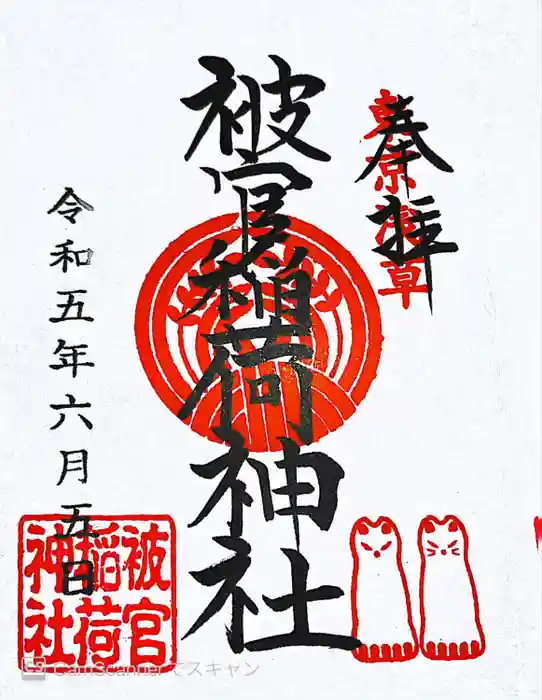 奉拝
東京浅草
被官稲荷神社
令和五年六月五日
被官
稲荷
神社
CamScannerでスキャン